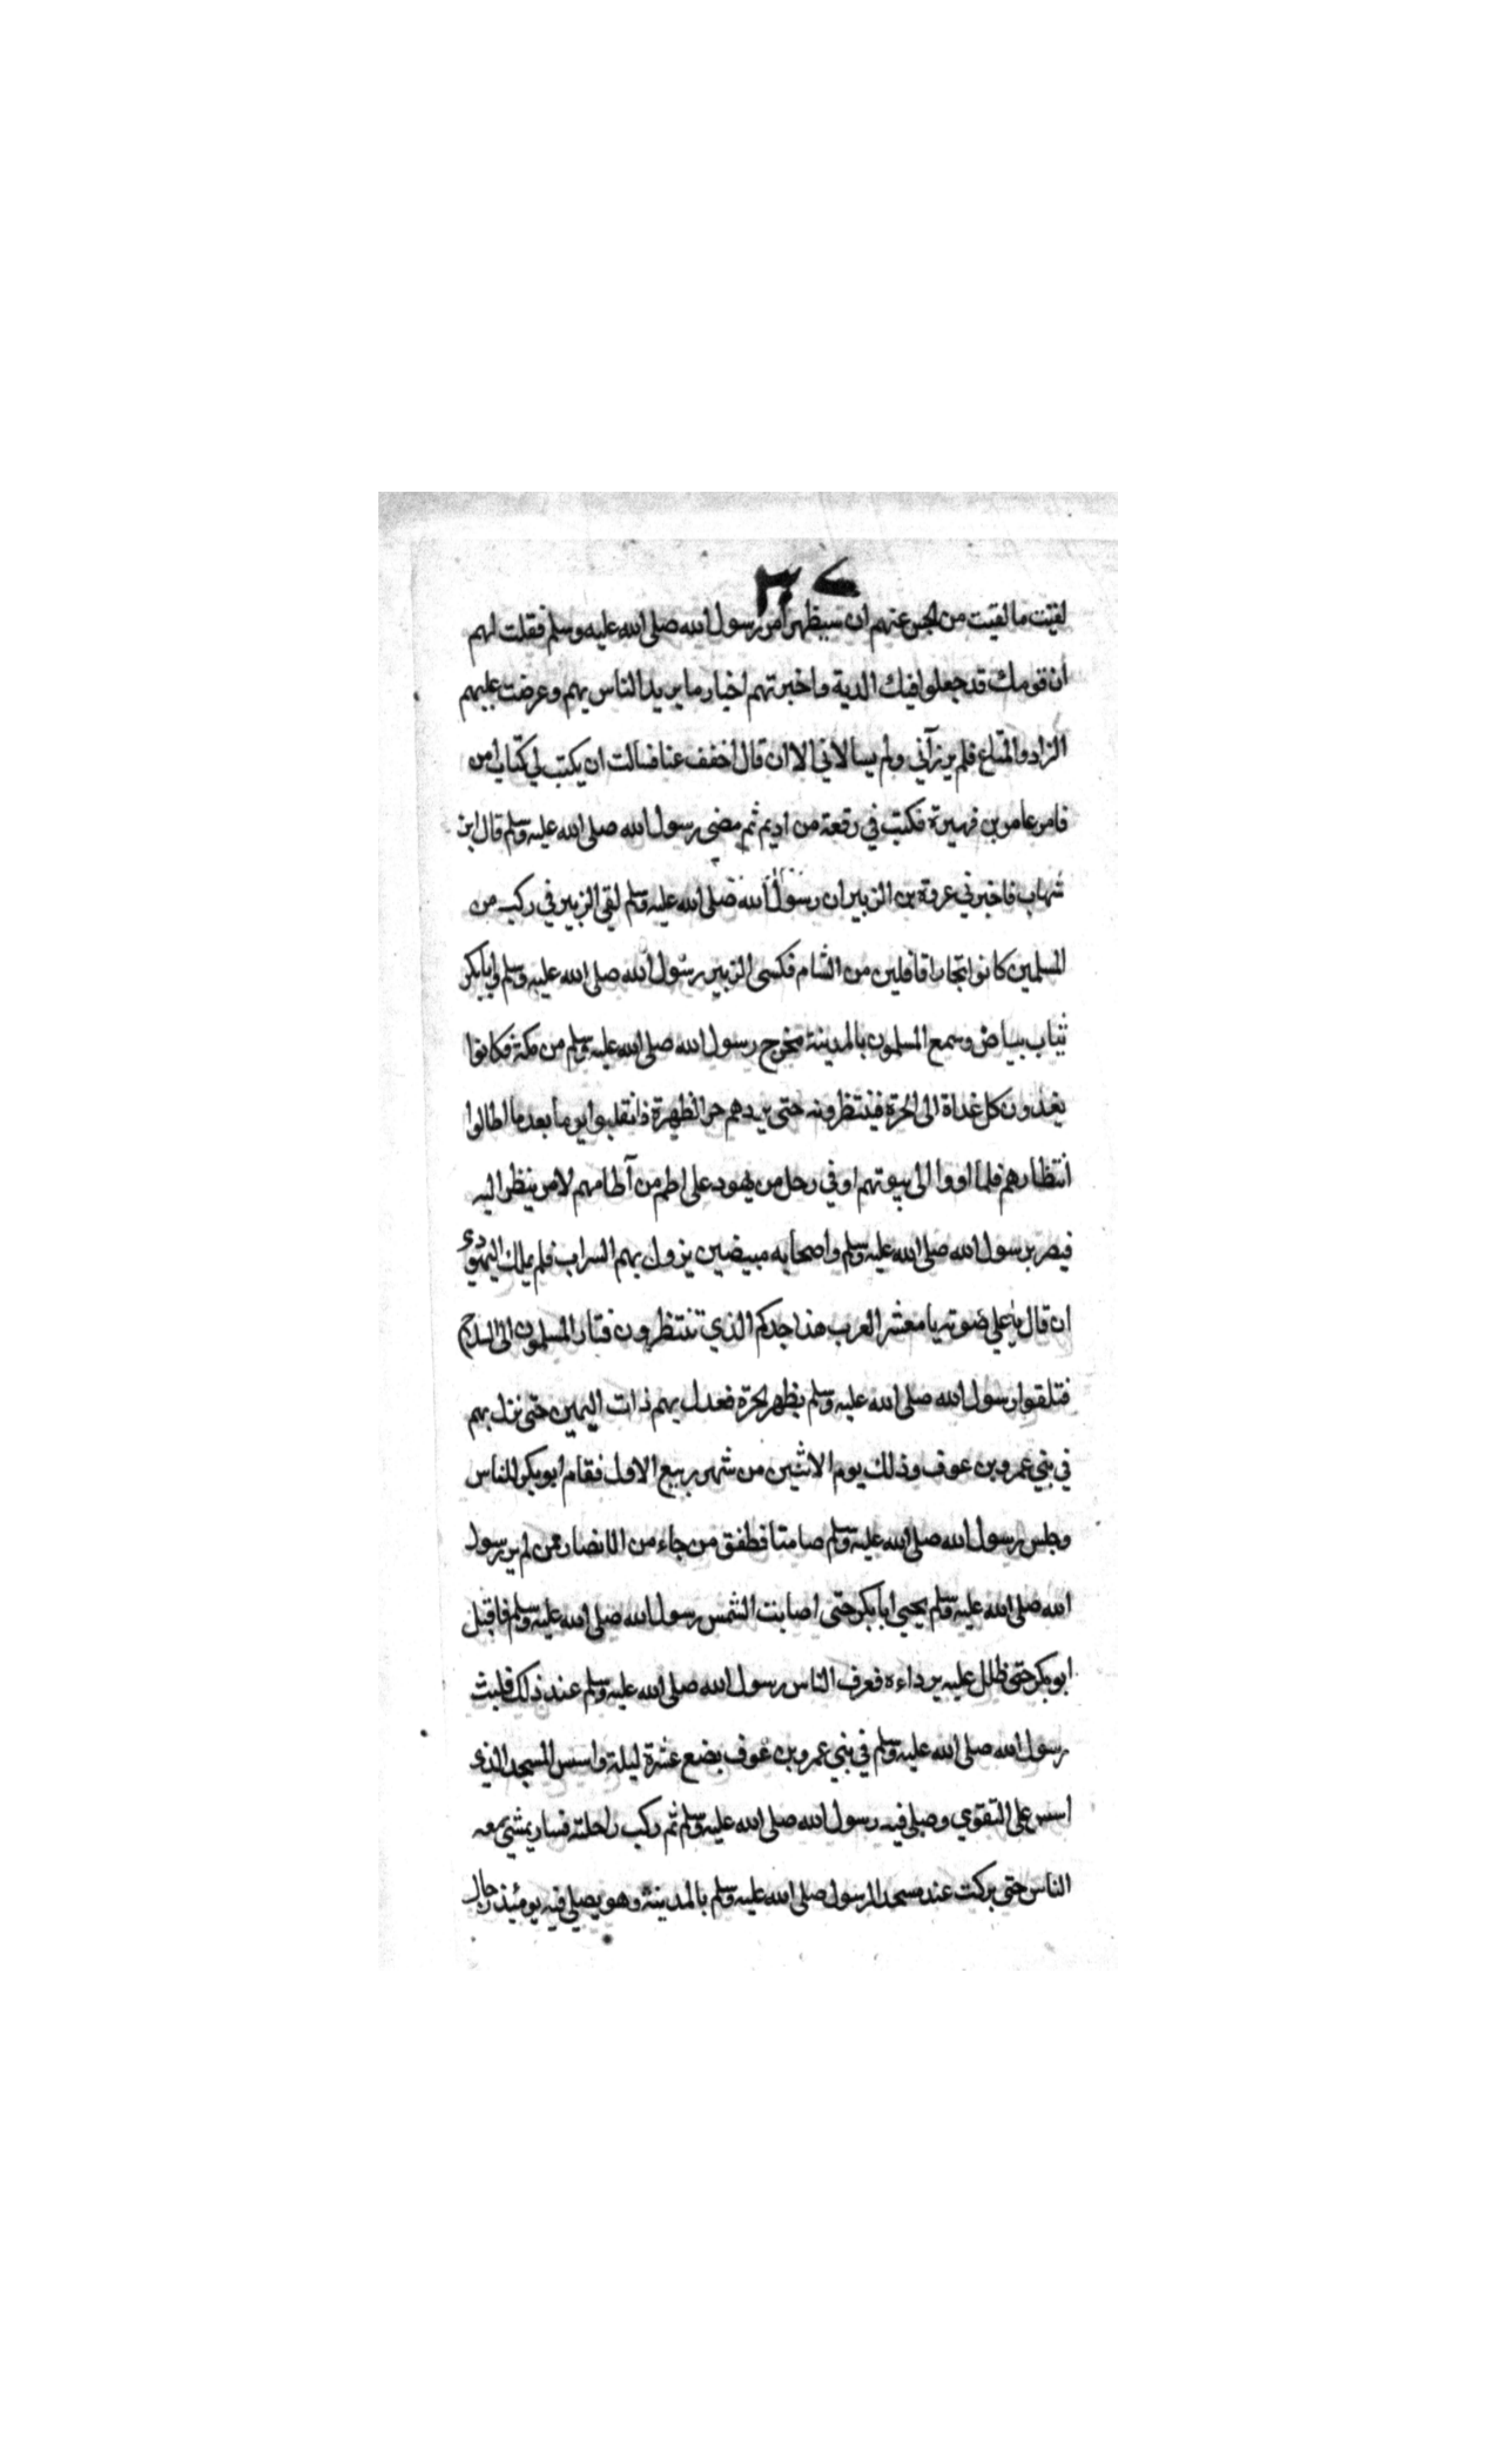 لقيت ما لقيت من الحبس عنهم ان سيظهر امر رسول الله صلى الله عليه وسلم فقلت لهم
ان قومك قد جعلوا فيك الدية واخبرتهم اخبار ما يريد الناس بهم وعرضت عليهم
الزاد والمتاع فلم يرزآني ولم يسالاني الا ان قال اخفف عنا فسالت ان يكتب لي كتاب امن
فامر عامر بن فهيرة فكتب في رقعة من اديم ثم مضى رسول الله صلى الله عليه وسلم قال ابن
شهاب فاخبرني عروة بن الزبير ان رسول الله صلى الله عليه وسلم لقى الزبير في ركب من
المسلمين كانوا تجارا قافلين من الشام فكسى الزبير رسول الله صلى الله عليه وسلم وابابكر
ثياب بياض وسمع المسلمون بالمدينة مخرج رسول الله صلى الله عليه وسلم من مكة فكانوا
يغدون كل غداة الى الحرة فينتظرونه حتى يردهم حر الظهيرة فانقلبوا يوما بعد ما اطالوا
انتظارهم فلما اووا الى بيوتهم اوفى رجل من يهود على اطم من آطامهم لامر ينظر اليه
فبصر برسول الله صلى الله عليه وسلم واصحابه مبيضين يزول بهم السراب فلم يملك اليهودي
ان قال باعلي صوته يا معشر العرب هذا جدكم الذي تنتظرون فثار المسلمون الى السلاح
فتلقوا رسول الله صلى الله عليه وسلم بظهر الحرة فعدل بهم ذات اليمين حتى نزل بهم
في بني عمرو بن عوف وذلك يوم الاثنين من شهر ربيع الاول فقام ابوبكر للناس
وجلس رسول الله صلى الله عليه وسلم صامتا فطفق من جاء من الانصار ممن لم ير رسول
الله صلى الله عليه وسلم يحيي ابابكر حتى اصابت الشمس رسول الله صلى الله عليه وسلم فاقبل
ابوبكر حتى ظلل عليه برداءه فعرف الناس رسول الله صلى الله عليه وسلم عند ذلك فلبث
رسول الله صلى الله عليه وسلم في بني عمرو بن عوف بضع عشرة ليلة واسس المسجد الذي
اسس على التقوي وصلى فيه رسول الله صلى الله عليه وسلم ثم ركب راحلته فسار يمشي معه
الناس حتى بركت عند مسجد الرسول صلى الله عليه وسلم بالمدينة وهو يصلي فيه يومئذ رجال